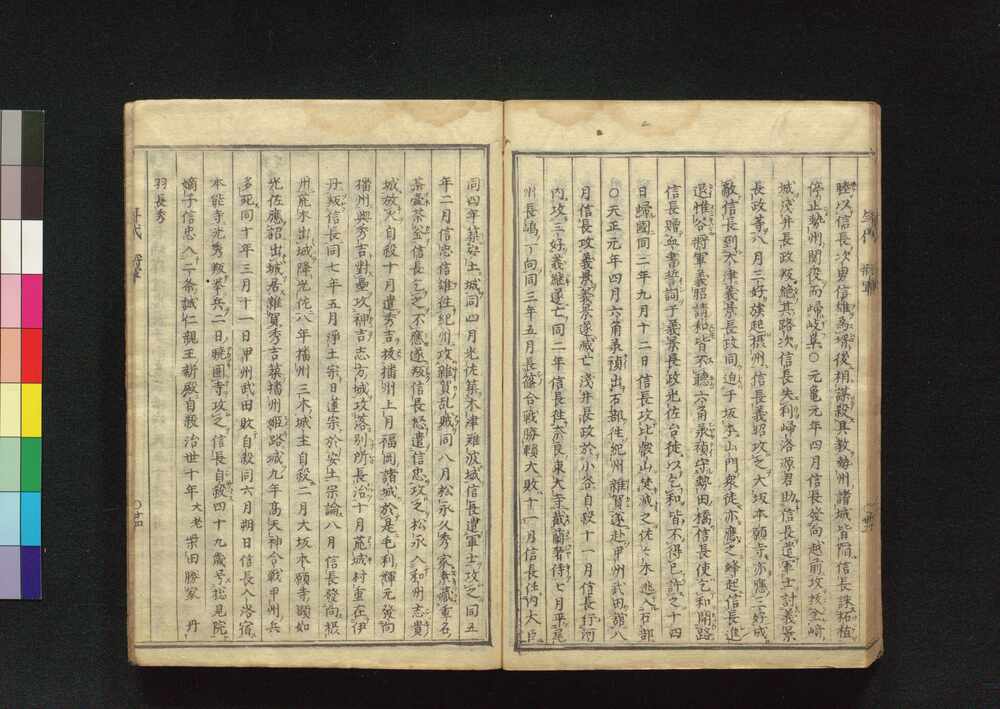 睦以信長次男信雄為婿後相謀殺具教勢州諸城皆陷信長誅柘植
停止勢州關役而歸岐阜〇元亀元年四月信長發向越前攻拔金崎
城淺井長政叛絶其路次信長失利歸洛源君助信長遣軍士討義景
長政等八月三好族起摂州信長義昭攻之大坂本願寺亦應三好成
敵信長到大津義景長政同迫于坂本山門衆徒亦應之蜂起信長進
退惟谷將軍義昭請和皆不聽六角義禎守勢田橋信長使乞和開路
信長贈血書誓詞于義景長政光佐台徒以乞和皆不得已許之十四
日歸國同二年九月十二日信長攻比叡山焚滅之佐々木逃入石部
〇天正元年四月六角義禎出石部徃紀州雜賀遂赴甲州武田胡八
月信長攻義景義景遂滅亡淺井長政於小谷自殺十一月信長行河
内攻三好義継遂亡同二年信長徃奈良東大寺截蘭奢待七月平尾
州長嶋一向同三年五月長篠合戰勝頼大敗十一月信長任内大臣
同四年築安土城同四月光佐築木津難波城信長遣軍士攻之同五
年二月信忠信雄徃紀州攻雜賀乱賊同八月松永久秀家素藏重名
茶壷茶釜信長乞之不應遂叛信長怒遣信忠攻之松永入和州志貴
城放火自殺十月遣秀吉拔播州上月福岡諸城於是毛利輝元發向
播州與秀吉對壘攻神吉志方城攻落別所長治十月荒城村重在伊
丹叛信長同七年五月淨土宗日蓮宗於安土宗論八月信長發向摂
州荒木出城降光佐八年播州三木城主自殺二月大坂本願寺顕如
光佐應詔出城居雜賀秀吉築播州姫路城九年髙天神合戰甲州兵
多死同十年三月十一日甲州武田敗自殺同六月朔日信長入洛宿
本能寺光秀叛挙兵二日曉圍寺攻之信長自殺四十九歳号總見院
嫡子信忠入二条誠仁親王新殿自殺治世十年大老柴田勝家　丹
羽長秀